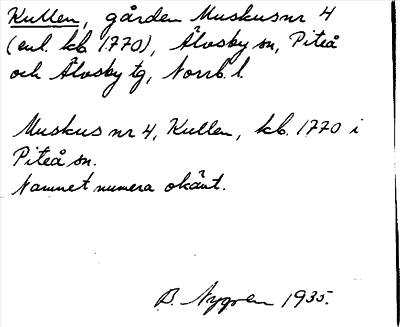 Kullen, gården Muskus nr 4
(enl. kb 1770), Älvsby sn, Piteå
och Älvsby tg, Norrb. l.
Muskus nr 4, Kullen, kb. 1770 i
Piteå sn.
Namnet numera okänt.
B. Nygren 1935.